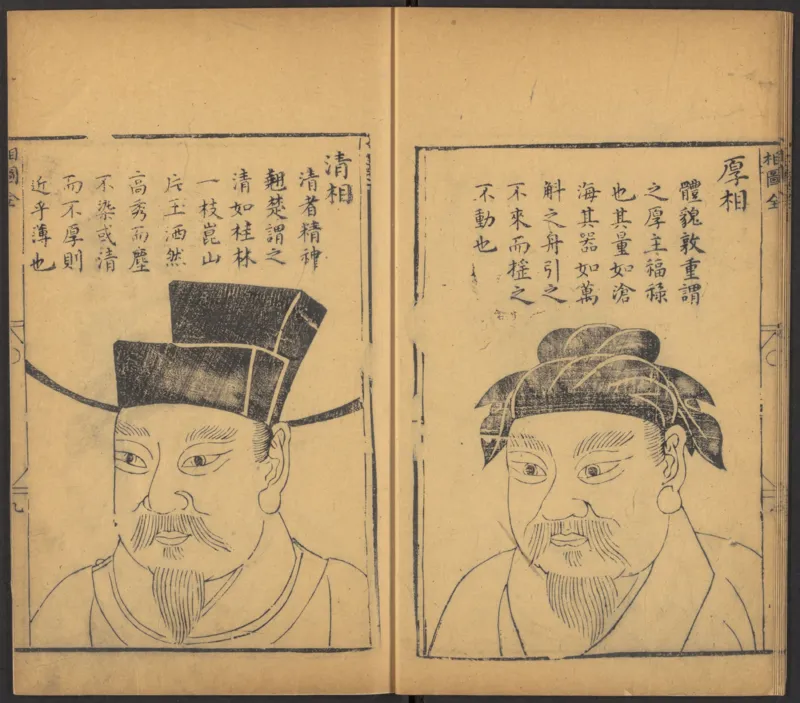 相圖全
厚相
體貌敦重謂
之厚主福祿
也其量如滄
海其器如萬
斛之舟引之
不來而搖之
不動也
清相
清者精神
翹楚謂之
清如桂林
一枝崑山
片玉洒然
高秀而塵
不染或清
而不厚則
近乎薄也
相圖全
九